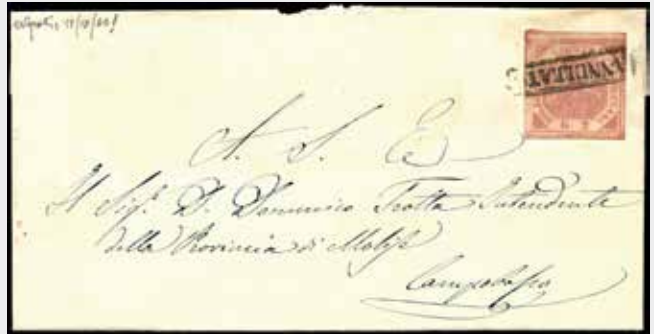 ANNULLATO
A. S. E.
Il Sig.r D. Domenico Trotta Intendente
della Provincia di Molise
Campobasso